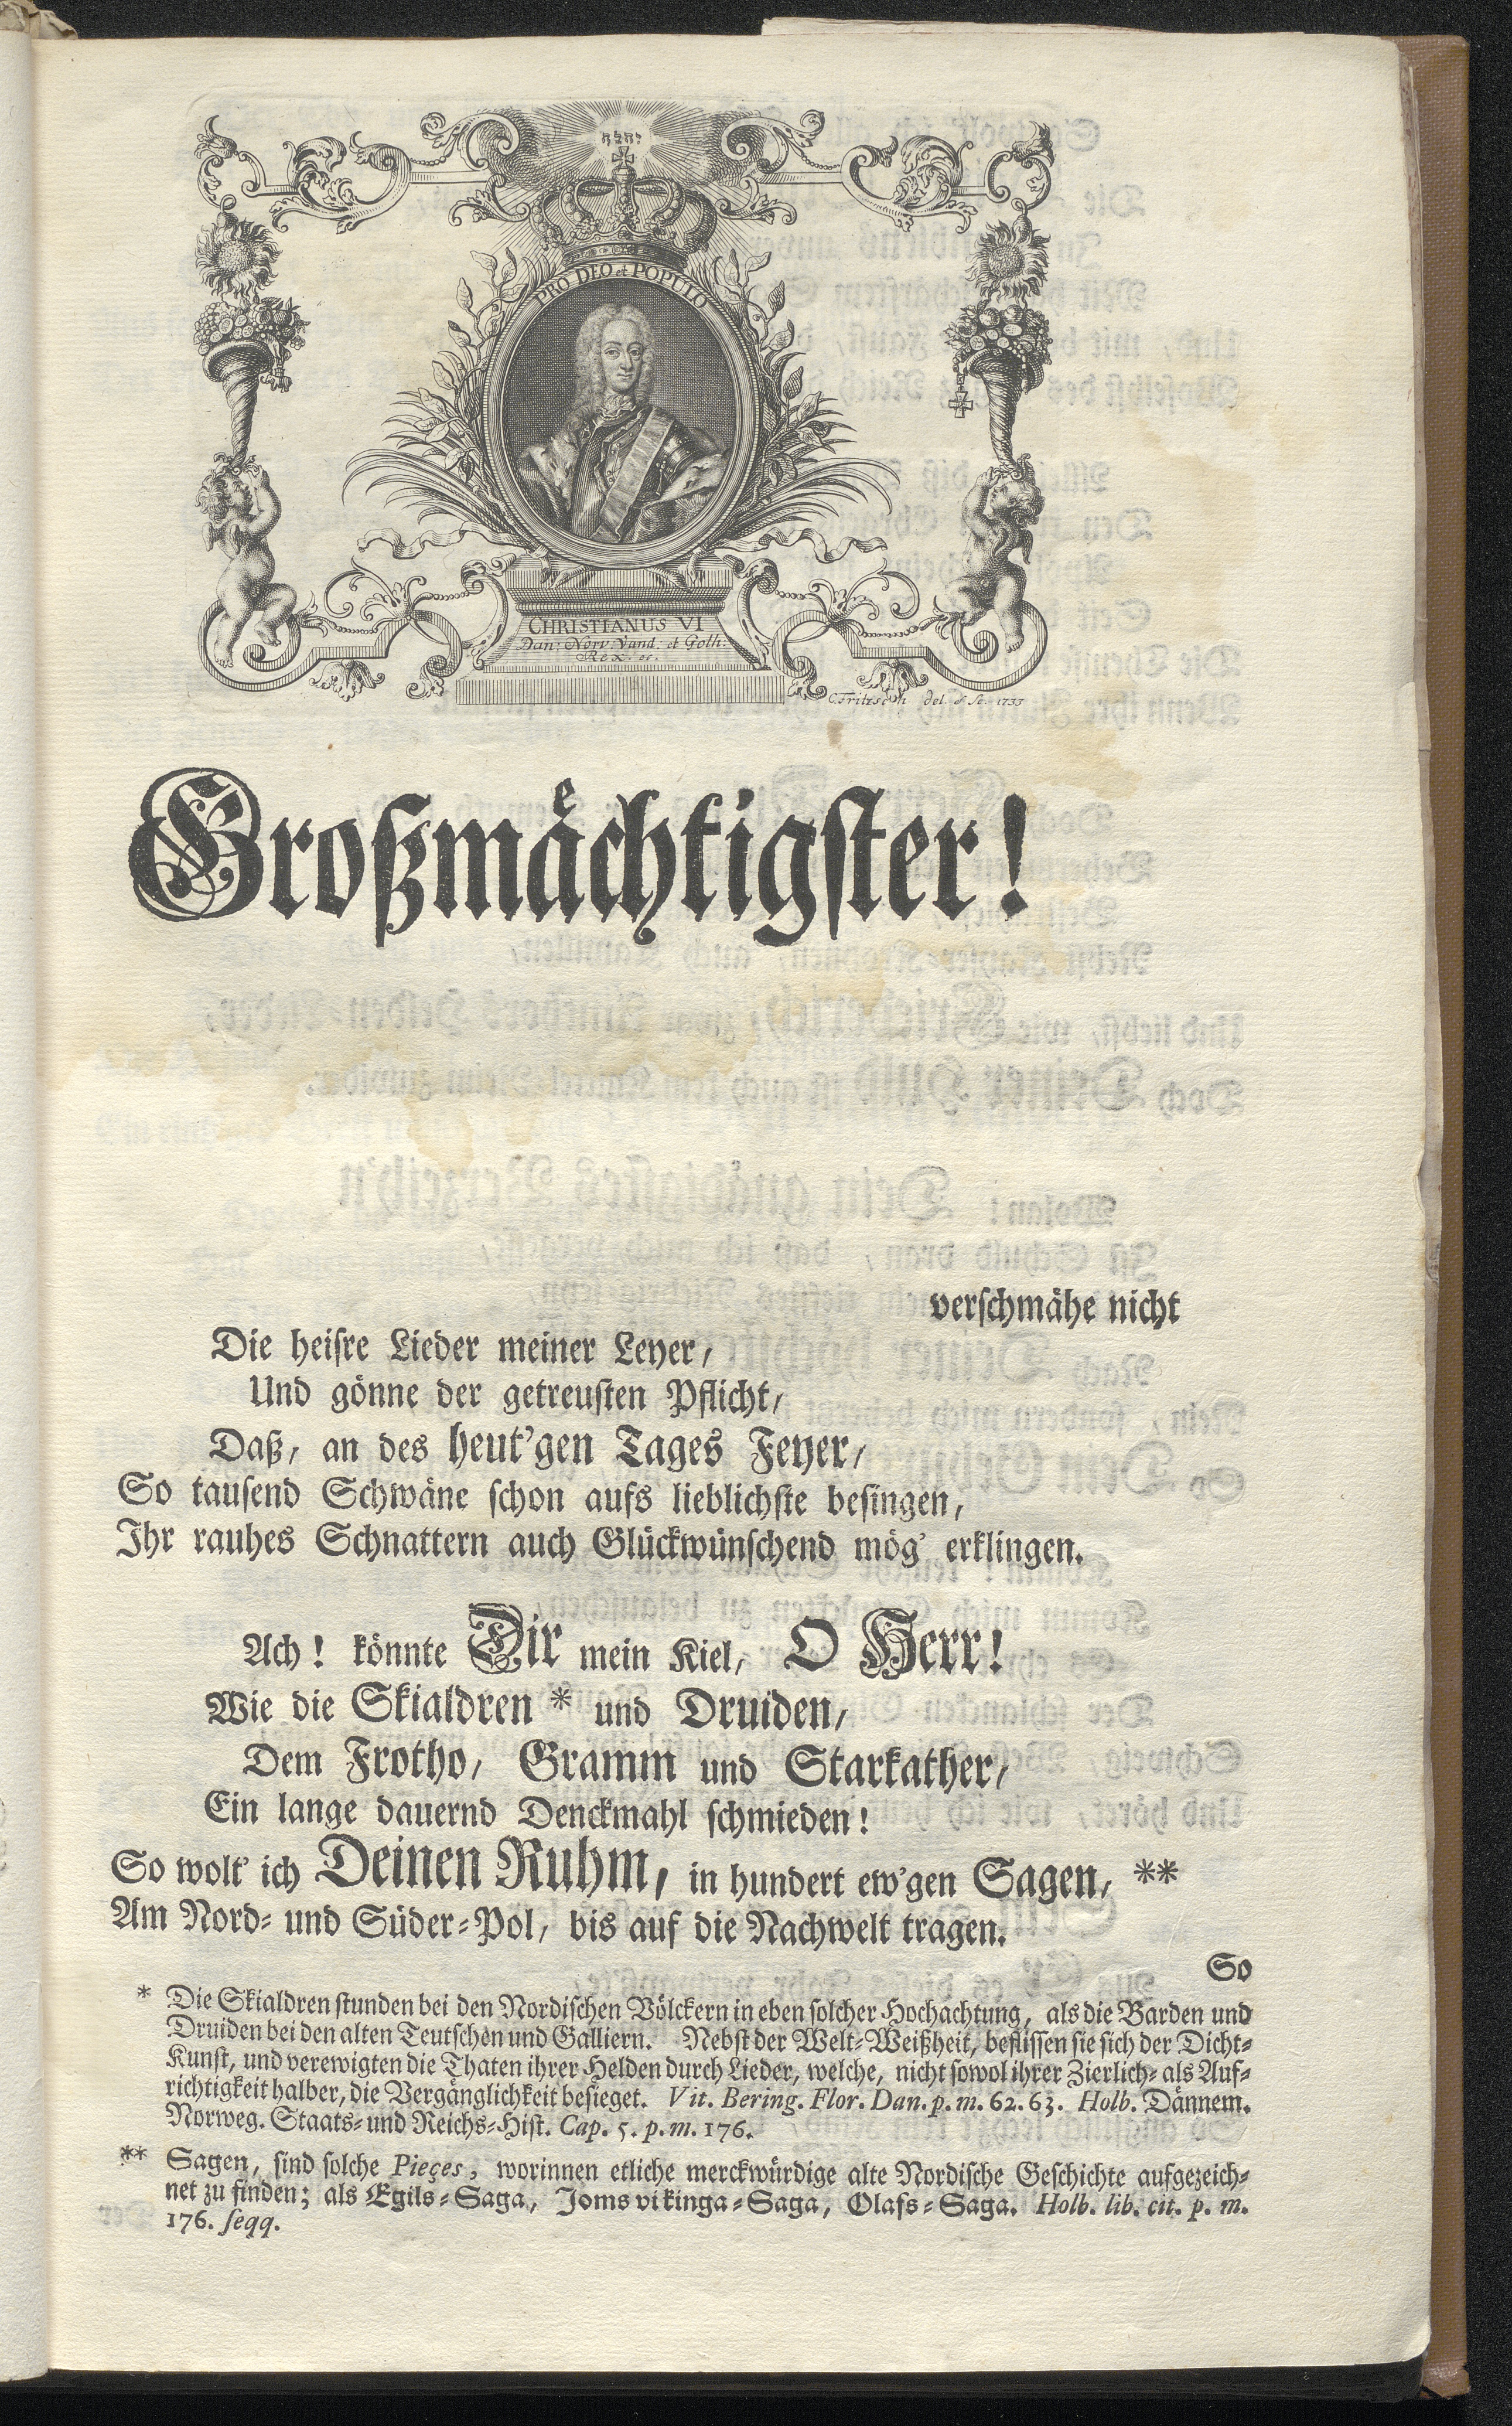 יהוה
PRO DEO et POPULO
CHRISTIANUS VI
Dan: Norv: Vand: et Goth:
Rex. etc.
C. Fritzsch del. & Sc. 1733
Großmächtigster!
verschmähe nicht
Die heisre Lieder meiner Leyer/
Und gönne der getreusten Pflicht/
Daß/ an des heut'gen Tages Feyer/
So tausend Schwäne schon aufs lieblichste besingen,
Ihr rauhes Schnattern auch Glückwünschend mög' erklingen.
Ach! könnte Dir mein Kiel, O Herr!
Wie die Skialdren * und Druiden/
Dem Frotho/ Gramm und Starkather/
Ein lange dauernd Denckmahl schmieden!
So wolt' ich Deinen Ruhm, in hundert ew'gen Sagen, **
Am Nord- und Süder-Pol/ bis auf die Nachwelt tragen.
So
* Die Skialdren stunden bei den Nordischen Völckern in eben solcher Hochachtung, als die Barden und
Druiden bei den alten Teutschen und Galliern. Nebst der Welt-Weißheit, beflissen sie sich der Dicht-
Kunst, und verewigten die Thaten ihrer Helden durch Lieder, welche, nicht sowol ihrer Zierlich- als Auf-
richtigkeit halber, die Vergänglichkeit besieget. Vit. Bering. Flor. Dan. p. m. 62. 63. Holb. Dännem.
Norweg. Staats- und Reichs-Hist. Cap. 5. p. m. 176.
** Sagen, sind solche Pieçes, worinnen etliche merckwürdige alte Nordische Geschichte aufgezeich-
net zu finden; als Egils-Saga, Joms vikinga-Saga, Olafs-Saga. Holb. lib. cit. p. m.
176. seqq.